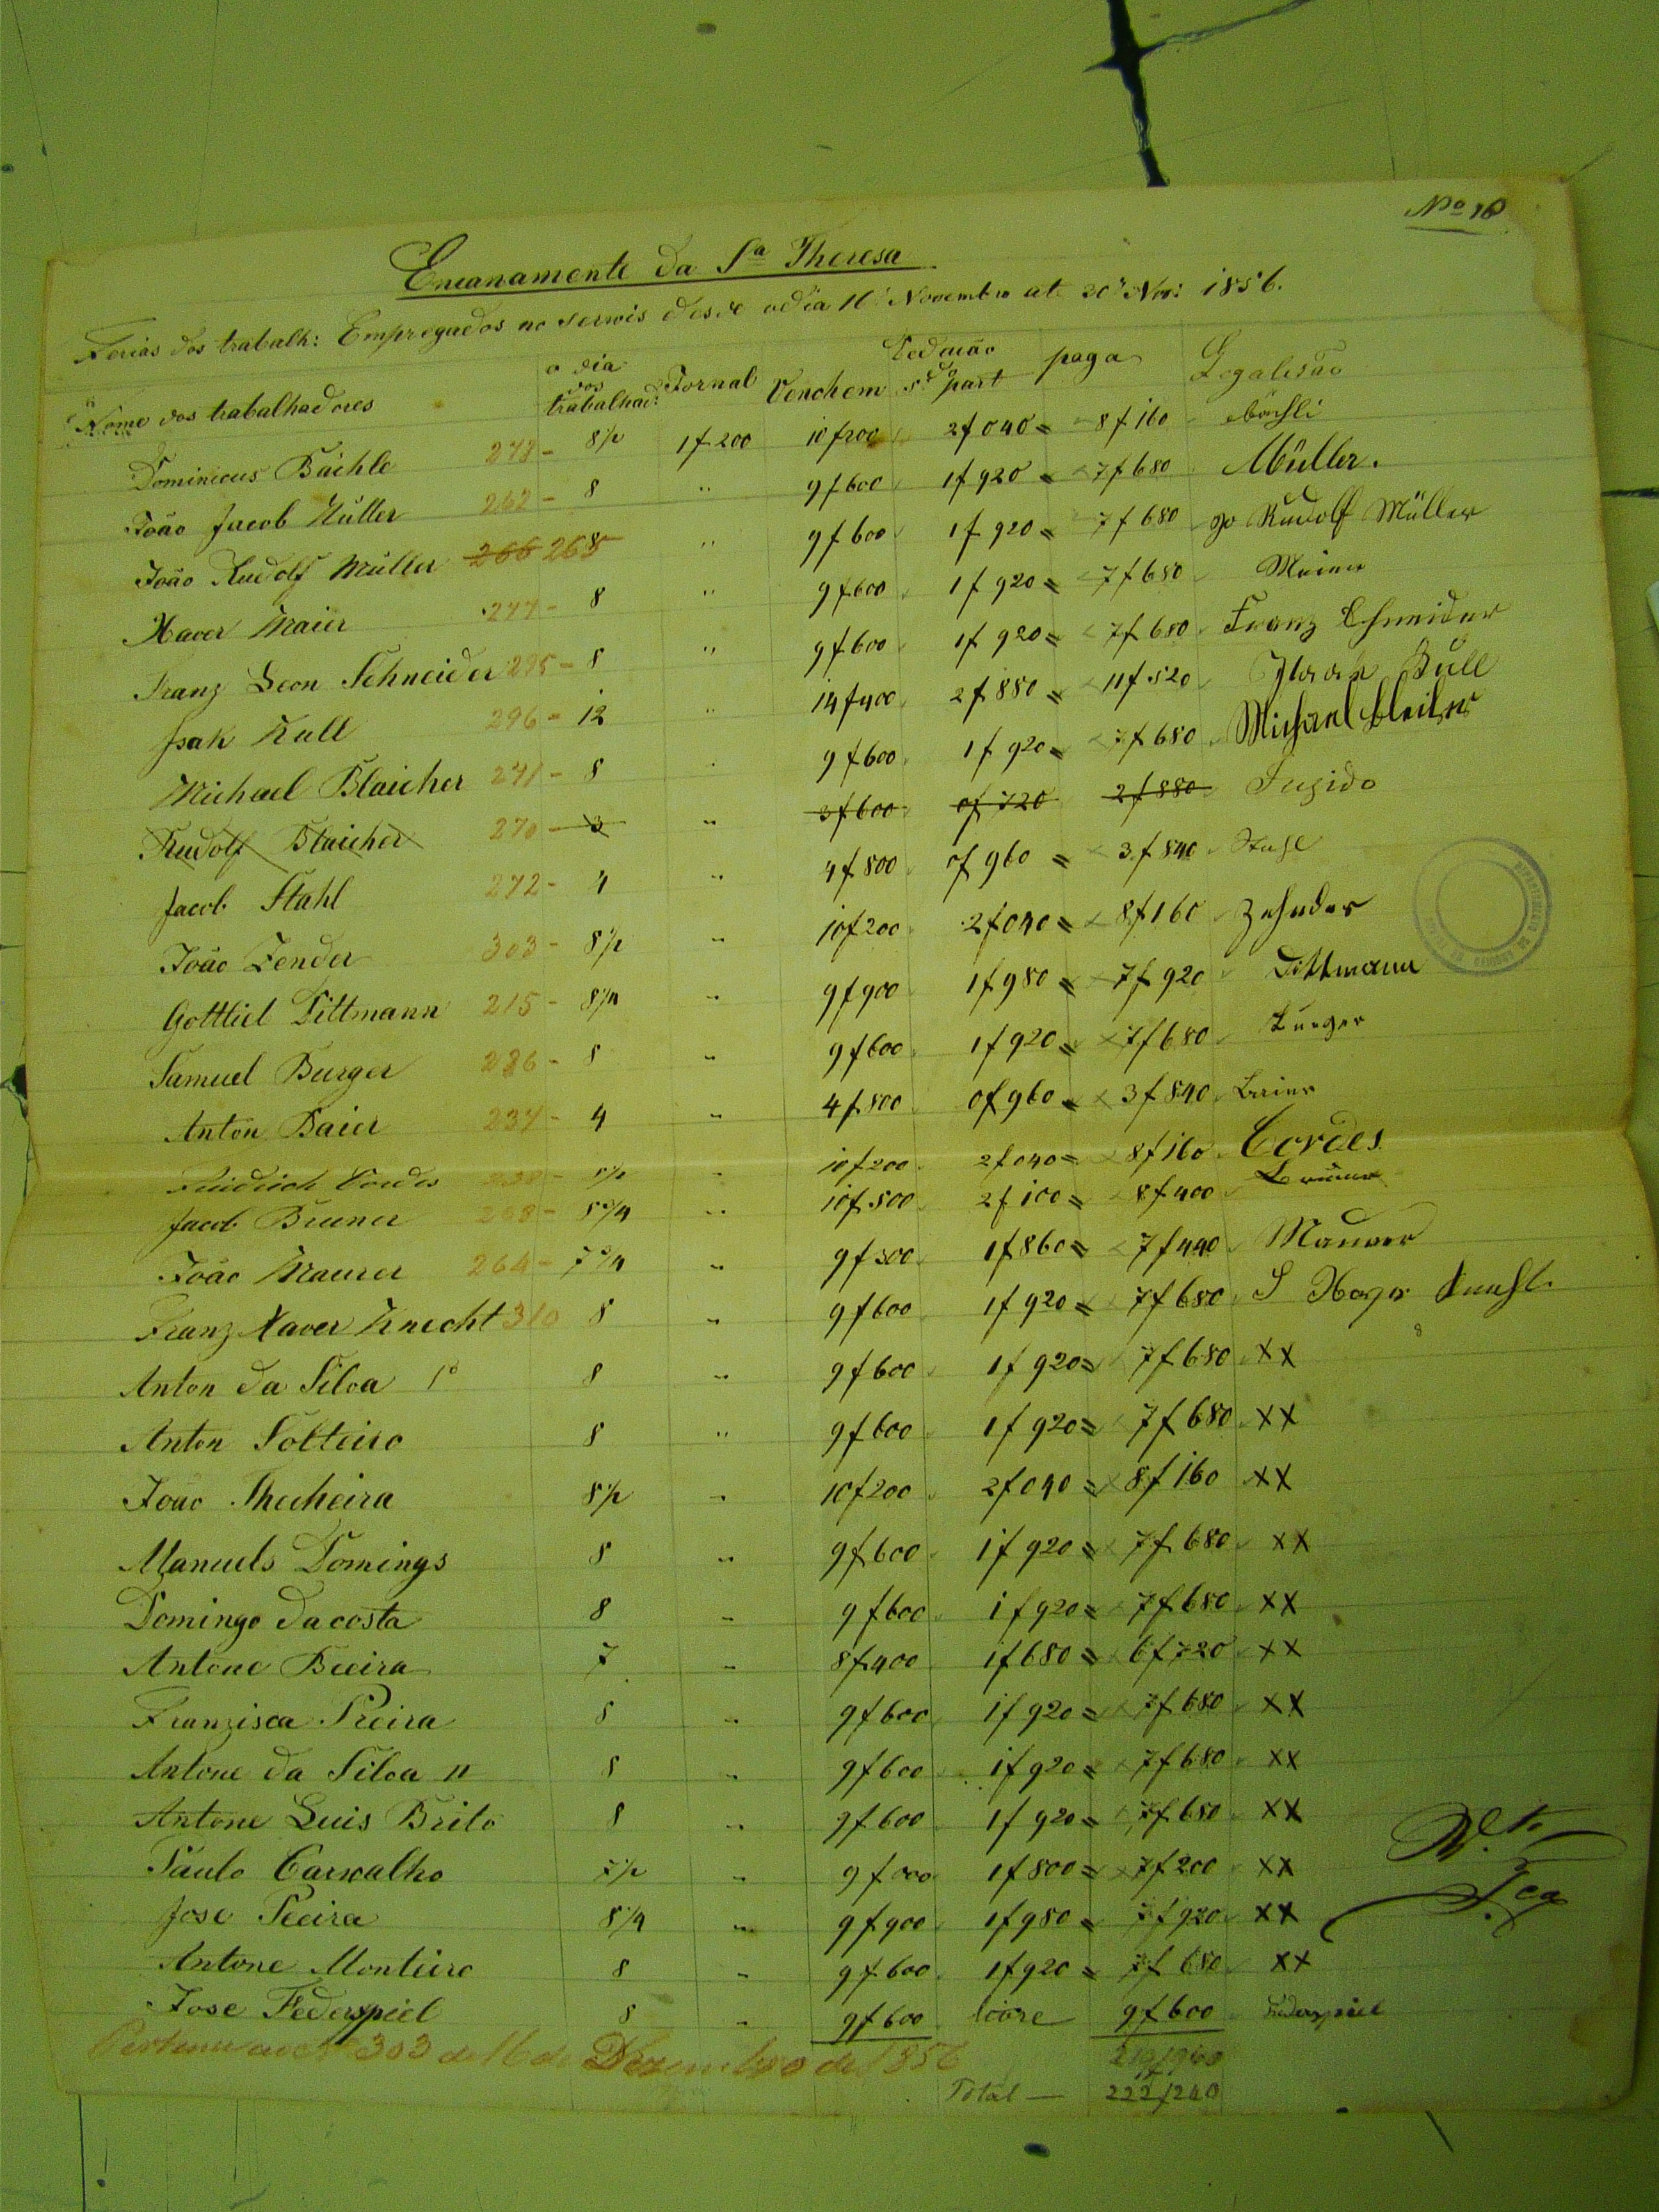 No 18
Encanamente da Sa Theresa
Ferias dos trabalh: Empregados no serwis desde odia 16 Novembro até 30 Nov: 1856.
Nome dos trabalhadores o dia dos trabalhad: Jornal Venchem Deducão 5ª part paga Legalisão
Dominicus Bächle 278 - 8½ 1f200 10f200 2f040 = 8f160 Bächli
João Jacob Müller 262 - 8 " 9f600 1f920 = 7f680 Müller.
João Rudolf Müller 266 265 8 " 9f600 1f920 = 7f680 Jo Rudolf Müller
Xaver Maier 277 - 8 " 9f600 1f920 = 7f680 Meier
Franz Leon Schneider 295 - 8 " 9f600 1f920 = 7f680 Franz Schneider
Isak Kull 296 - 12 " 14f400 2f880 = 11f520 Isaak Kull
Michael Blaicher 271 - 8 " 9f600 1f920 = 7f680 Michael Bleiker
Rudolf Blaicher 270 - 3 " 3f600 0f720 2f880 Fugido
Jacob Stahl 272 - 4 " 4f800 0f960 = 3f840 Stahl
João Zender 303 - 8½ " 10f200 2f040 = 8f160 Zehnder
Gottliel Dittmann 215 - 8¼ " 9f900 1f980 = 7f920 Dittmann
Samuel Burger 286 - 8 " 9f600 1f920 = 7f680 Burger
Anton Baier 237 - 4 " 4f800 0f960 = 3f840 Baier
Friidrich Cordes 8½ " 10f200 2f040 = 8f160 Cordes
Jacob Bruner 8¾ " 10f500 2f100 = 8f400 Bruner
João Maurer 264 - 7¾ " 9f300 1f860 = 7f440 Maurer
Franz Xaver Knecht 310 8 " 9f600 1f920 = 7f680
Anton da Silva 1º 8 " 9f600 1f920 = 7f680 XX
Anton Solteiro 8 " 9f600 1f920 = 7f680 XX
João Thecheira 8½ " 10f200 2f040 = 8f160 XX
Manuels Domings 8 " 9f600 1f920 = 7f680 XX
Domingo da costa 8 " 9f600 1f920 = 7f680 XX
Antone Bieira 7 " 8f400 1f680 = 6f720 XX
Franzisca Preira 8 " 9f600 1f920 = 7f680 XX
Antone da Silva II 8 " 9f600 1f920 = 7f680 XX
Antone Luis Brito 8 " 9f600 1f920 = 7f680 XX
Paulo Carvalho 7½ " 9f000 1f800 = 7f200 XX
Jose Pieira 8¼ " 9f900 1f980 = 7f920 XX
Antone Monteiro 8 " 9f600 1f920 = 7f680 XX
Jose Federspiel 8 " 9f600 livre 9f600 Federspiel
303 de 16 de Dezembro de 1856
Total — 222f240